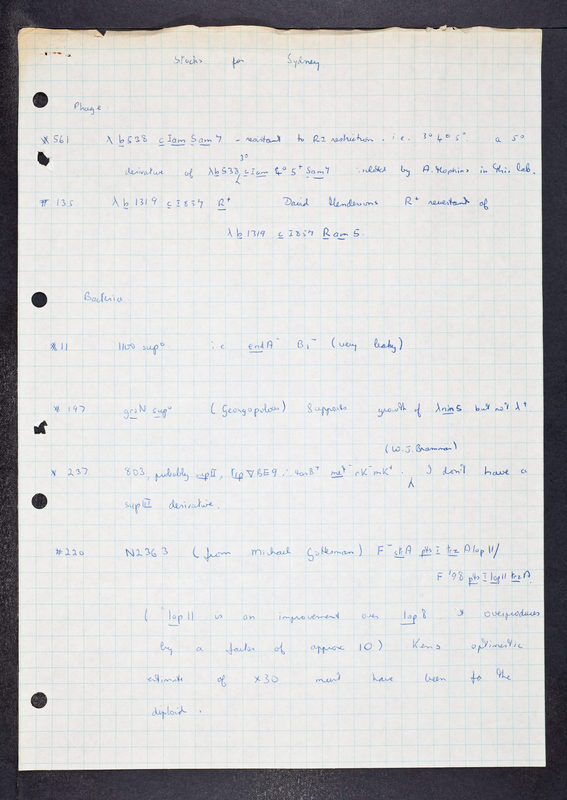 Stocks for Sydney
Phage.
* 561 λ b538 cIam Sam7 - resistant to RI restriction. i.e. 3° 4° 5°. a 5°
derivative of λb538 cIam 4° 5+ Sam7 by A. Hopkins in this lab.
3°
# 135 λ b1319 cI857 R+ David Hendersons R+ revertant of
λ b1319 cI857 Ram5.
Bacteria
* 11 1100 sup° i.e. endA⁻ B₁⁻ (very leaky)
* 197 groN sup° (Georgopolous) Supports growth of λnin5 but not λ+
(W.J. Brammar)
* 237 803, probably supII, trp∇BE9 ∴ tonB+ met⁻ rK⁻mK+. I don't have a
supIII derivative.
#220 N2363 (from Michael Gottesman) F⁻ strA pts I trz A lop11/
F'98 pts I lop11 trz A.
(lop11 is an improvement over lop8. It overproduces
by a factor of approx 10) Ken's optimistic
estimate of ×30 must have been for the
diploid.